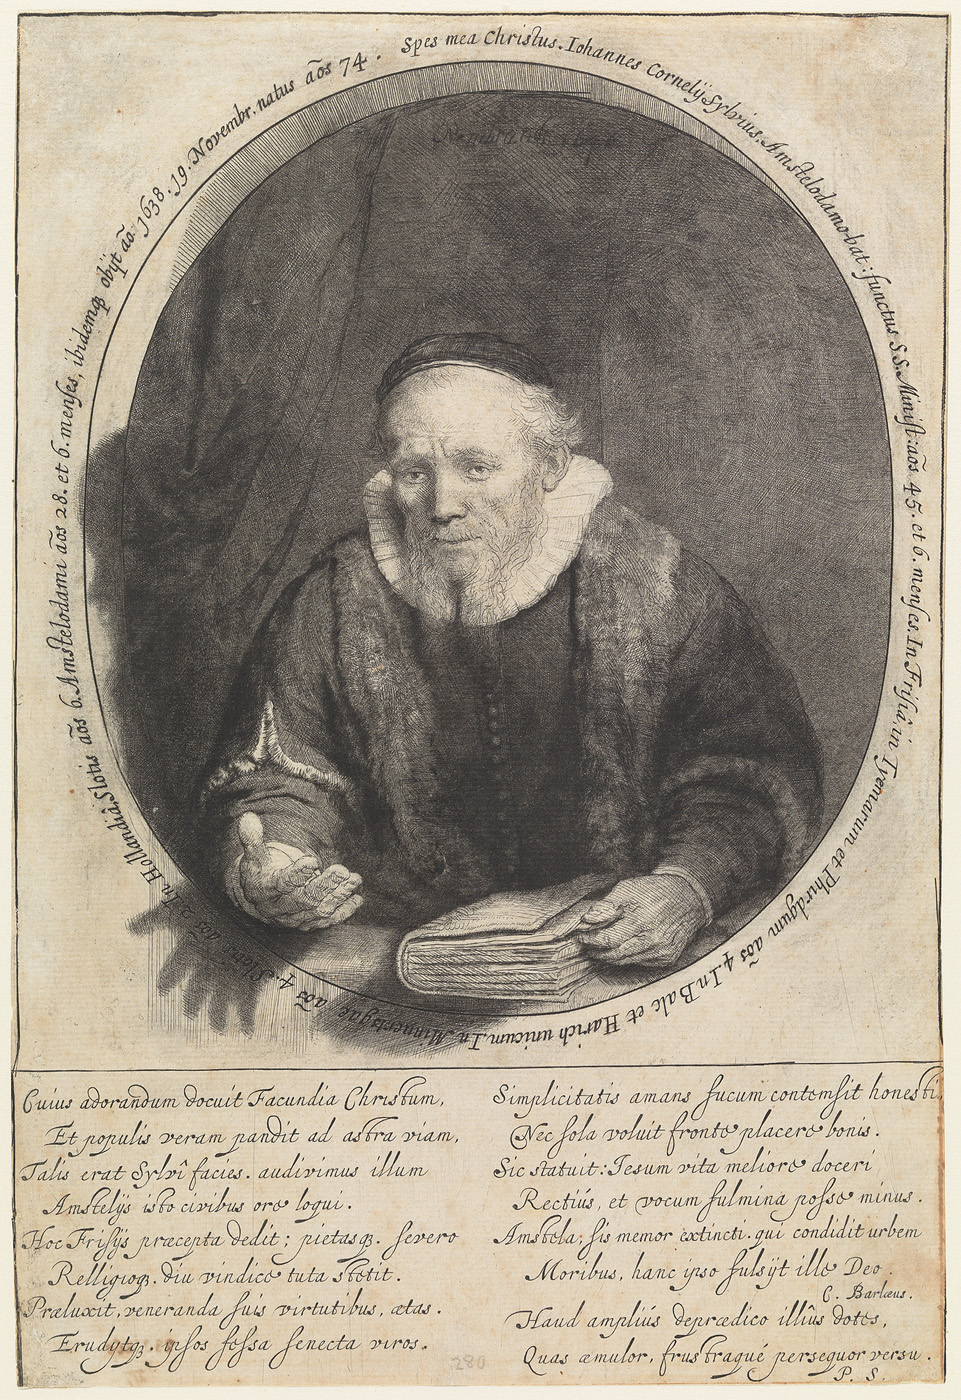 Spes mea Christus. Iohannes Cornelÿ Sylvius, Amstelodamo-bat: functus S.S. Minist: aõs 45. et 6. menses. In Frisia, in Tyemarum et Phirdgum aõs 4. In Balc et Harich unicum. In Minnertsgae aõs 4. Slotis aõs 2. In Hollandiâ, Slotis aõs 6. Amstelodami aõs 28. et 6. menses, ibidemqȝ obijt aõ. 1638. 19. Novembr. natus aõs 74.
Rembrandt
Cuius adorandum docuit Facundia Christum,
Et populis veram pandit ad astra viam,
Talis erat Sylvî facies. audivimus illum
Amstelÿs isto civibus ore loqui.
Hoc Frisÿs præcepta dedit; pietasqȝ. severo
Relligioqȝ. diu vindice tuta stetit.
Præluxit, veneranda suis virtutibus, ætas.
Erudÿtqȝ. ipsos fessa senecta viros.
Simplicitatis amans fucum contemsit honesti,
Nec sola voluit fronte placere bonis.
Sic statuit: Jesum vita meliore doceri
Rectiùs, et vocum fulmina posse minus.
Amstela, sis memor extincti. qui condidit urbem
Moribus, hanc ipso fulsÿt ille Deo.
C. Barlæus.
Haud ampliús deprædico illiûs dotes,
Quas æmulor, frustraqué persequor versu.
P. S.
280